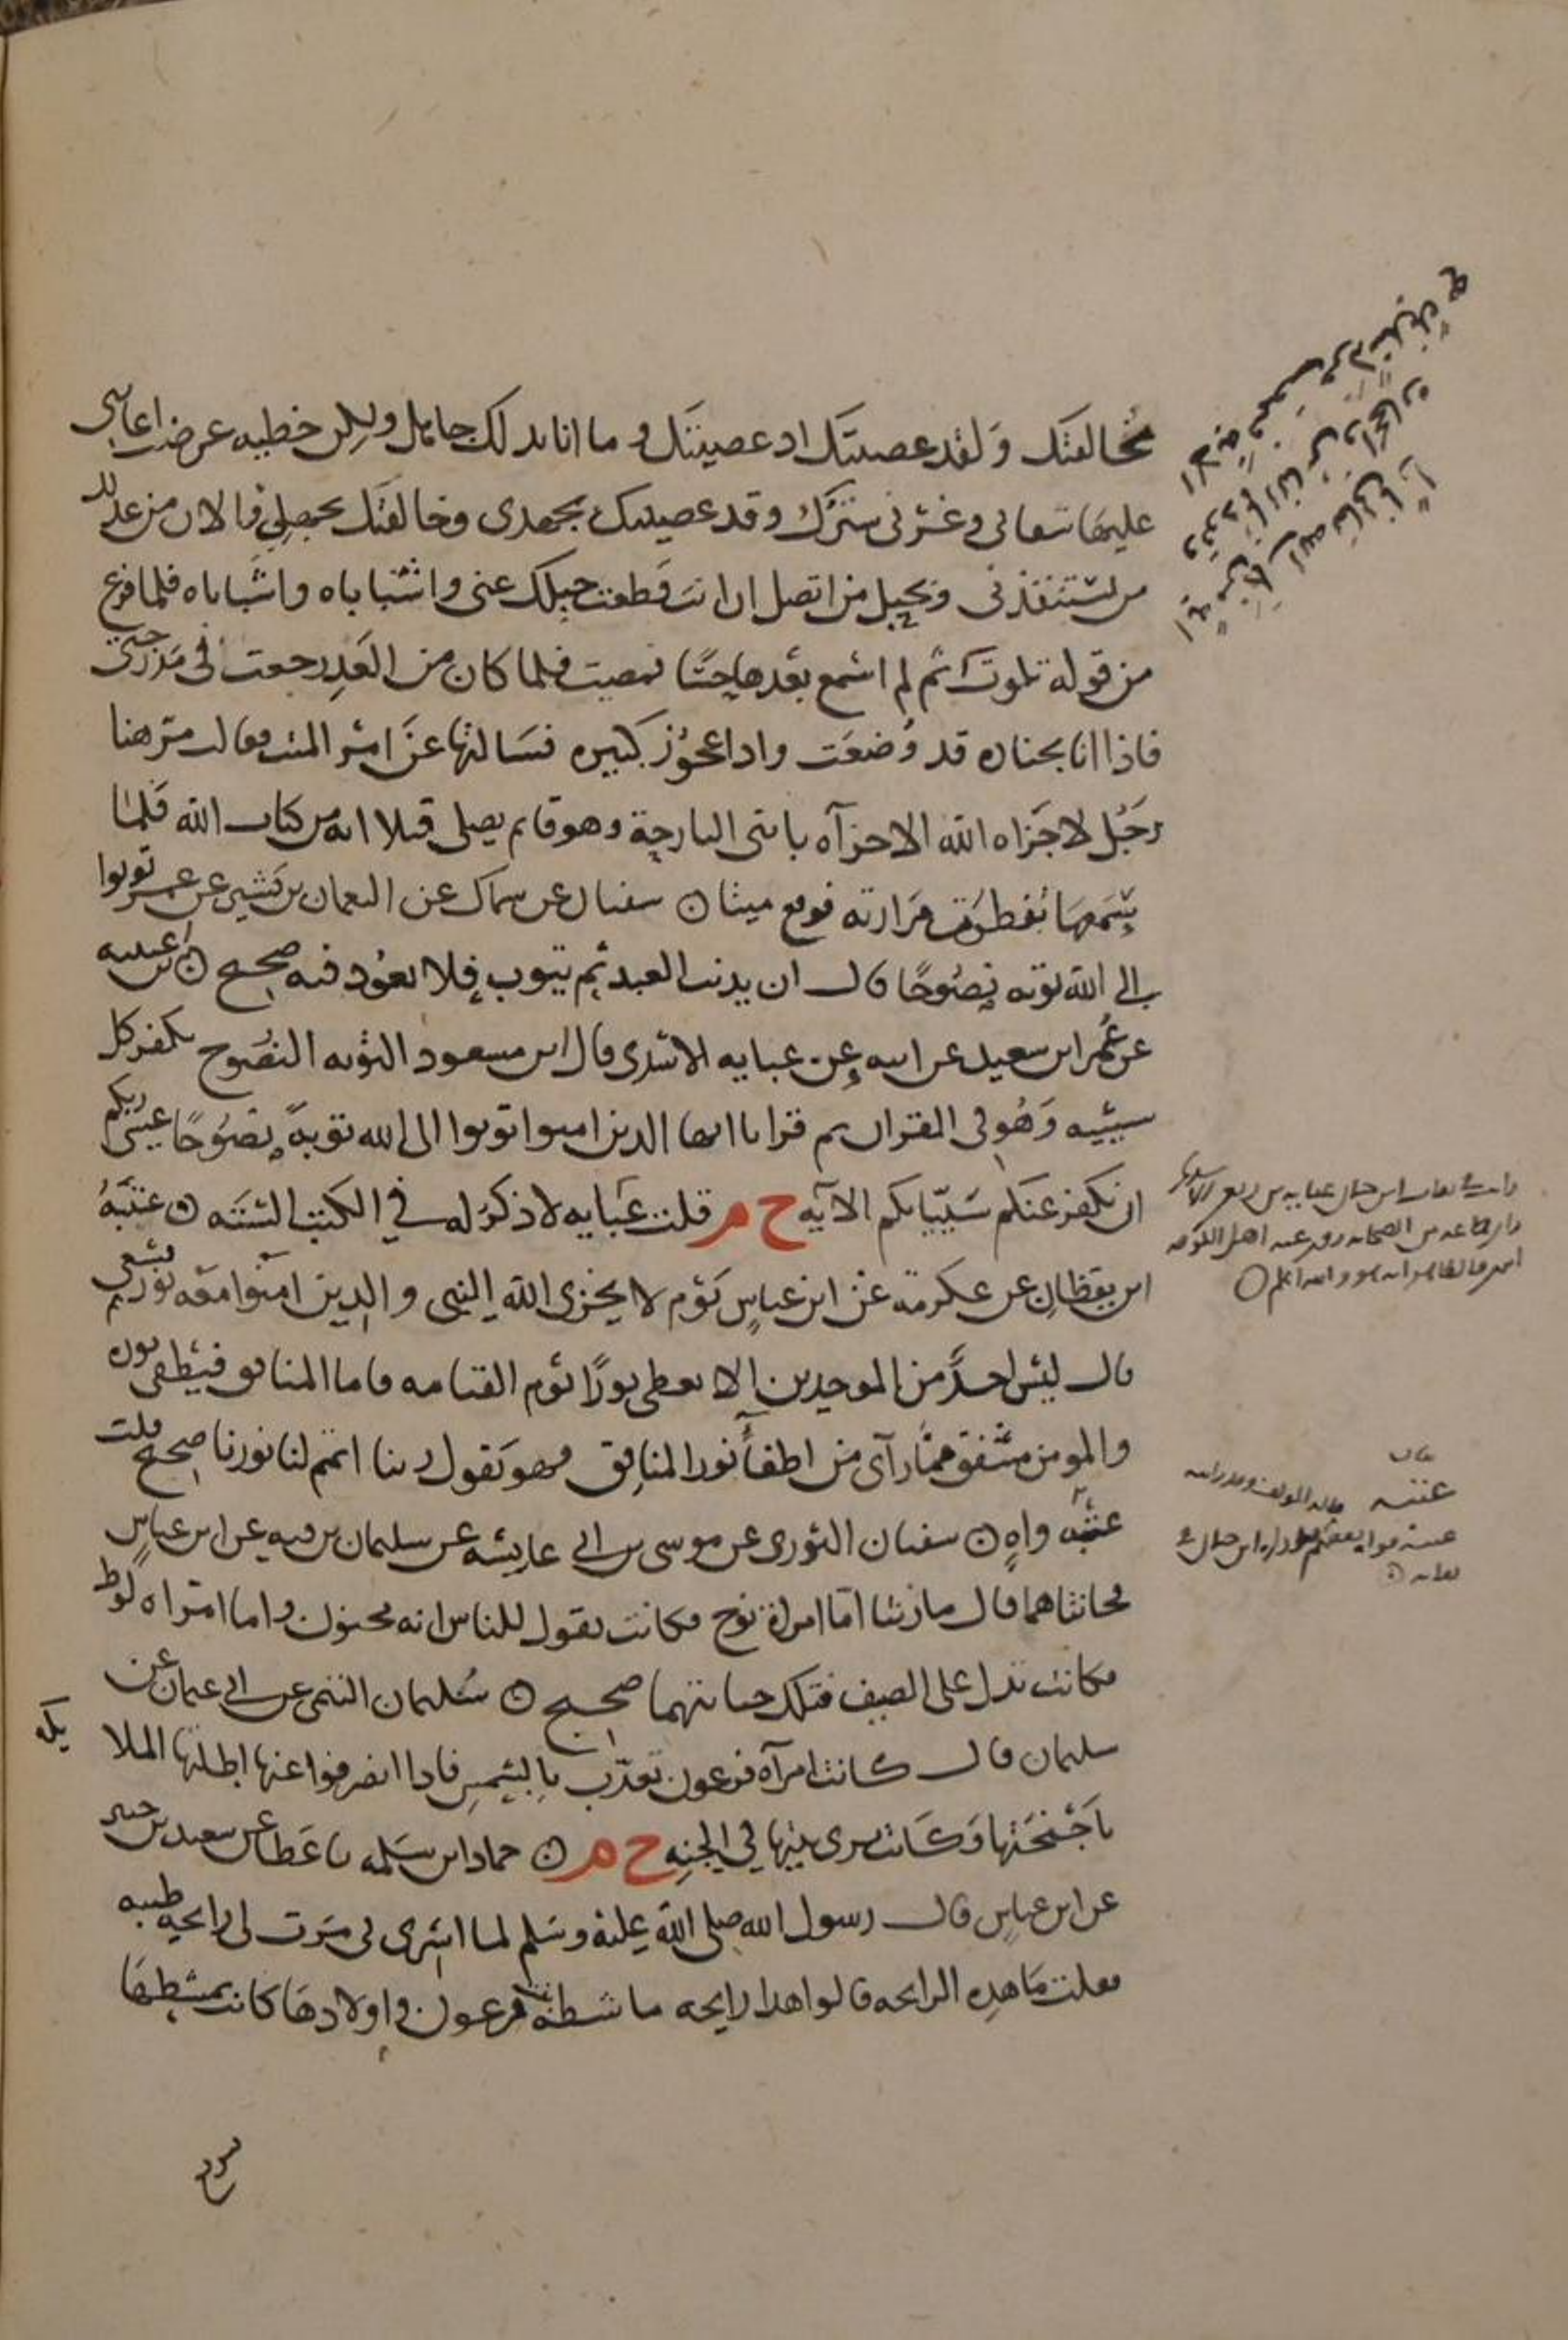 مخالفتك ولقد عصيتك اذ عصيتك وما انا بذلك جاهل ولكن خطيه عرضت اعانني
عليها شقائي وغرني سترك وقد عصيتك بجهدي وخالفتك بجهلي فالان من عذابك
من يستنقذني وبحبل من اتصل ان انت قطعت حبلك عني واشباباه واشباباه فلما فرغ
من قوله تلوت ثم لم اسمع بعدها حسا فمضيت فلما كان من الغد رجعت في مدرجتي
فاذا انا بجنازه قد وضعت واذا عجوز كبيره فسالتها عن امر الميت فقالت مر هنا
رجل لا جزاه الله الا جزآه بابني البارحة وهو قايم يصلي فتلا ايه من كتاب الله فلما
سمعها تفطرت مرارته فوقع ميتا ن سفيان عن سماك عن النعمان بن بشير عن عمر توبوا
الى الله توبه نصوحا قال ان يذنب العبد ثم يتوب فلا يعود فيه صحيح ن ابن عيينه
عن عمر ابن سعيد عن ابيه عن عبايه الاسدي قال ابن مسعود التوبه النصوح تكفر كل
سييه وهو في القران ثم قرا يا ايها الذين امنوا توبوا الى الله توبة نصوحا عسى ربكم
ان يكفر عنكم سيياتكم الآيه خ م قلت عبايه لا ذكر له في الكتب الستة ن عتبة
ابن يقظان عن عكرمة عن ابن عباس يوم لا يخزي الله النبي والذين امنوا معه نورهم يسعى
قال ليس احد من الموحدين الا يعطى نورا يوم القيامه فاما المنافق فيطفى نوره
والمومن مشفق مما راى من اطفأ نور المنافق فهو يقول ربنا اتمم لنا نورنا صحيح قلت
عتبه واه ن سفيان الثوري عن موسى بن ابي عايشه عن سليمان بن قته عن ابن عباس
فخانتاهما قال ما زنتا اما امراة نوح فكانت تقول للناس انه مجنون واما امراه لوط
فكانت تدل على الضيف فتلك خيانتهما صحيح ن سليمان التيمي عن ابي عثمان عن
سلمان قال كانت امرآه فرعون تعذب بالشمس فاذا انصرفوا عنها اظلتها الملا
يكه
باجنحتها وكانت ترى بيتها في الجنه خ م ن حماد ابن سلمه نا عطا عن سعيد بن جبير
عن ابن عباس قال رسول الله صلى الله عليه وسلم لما اسري بي مرت لي رايحه طيبه
فقلت ما هذه الرايحه قالوا هذا رايحه ماشطة بنت فرعون واولادها كانت تمشطها
عباية بن ربعي الاسدي
من الصحابه روى عنه اهل الكوفه